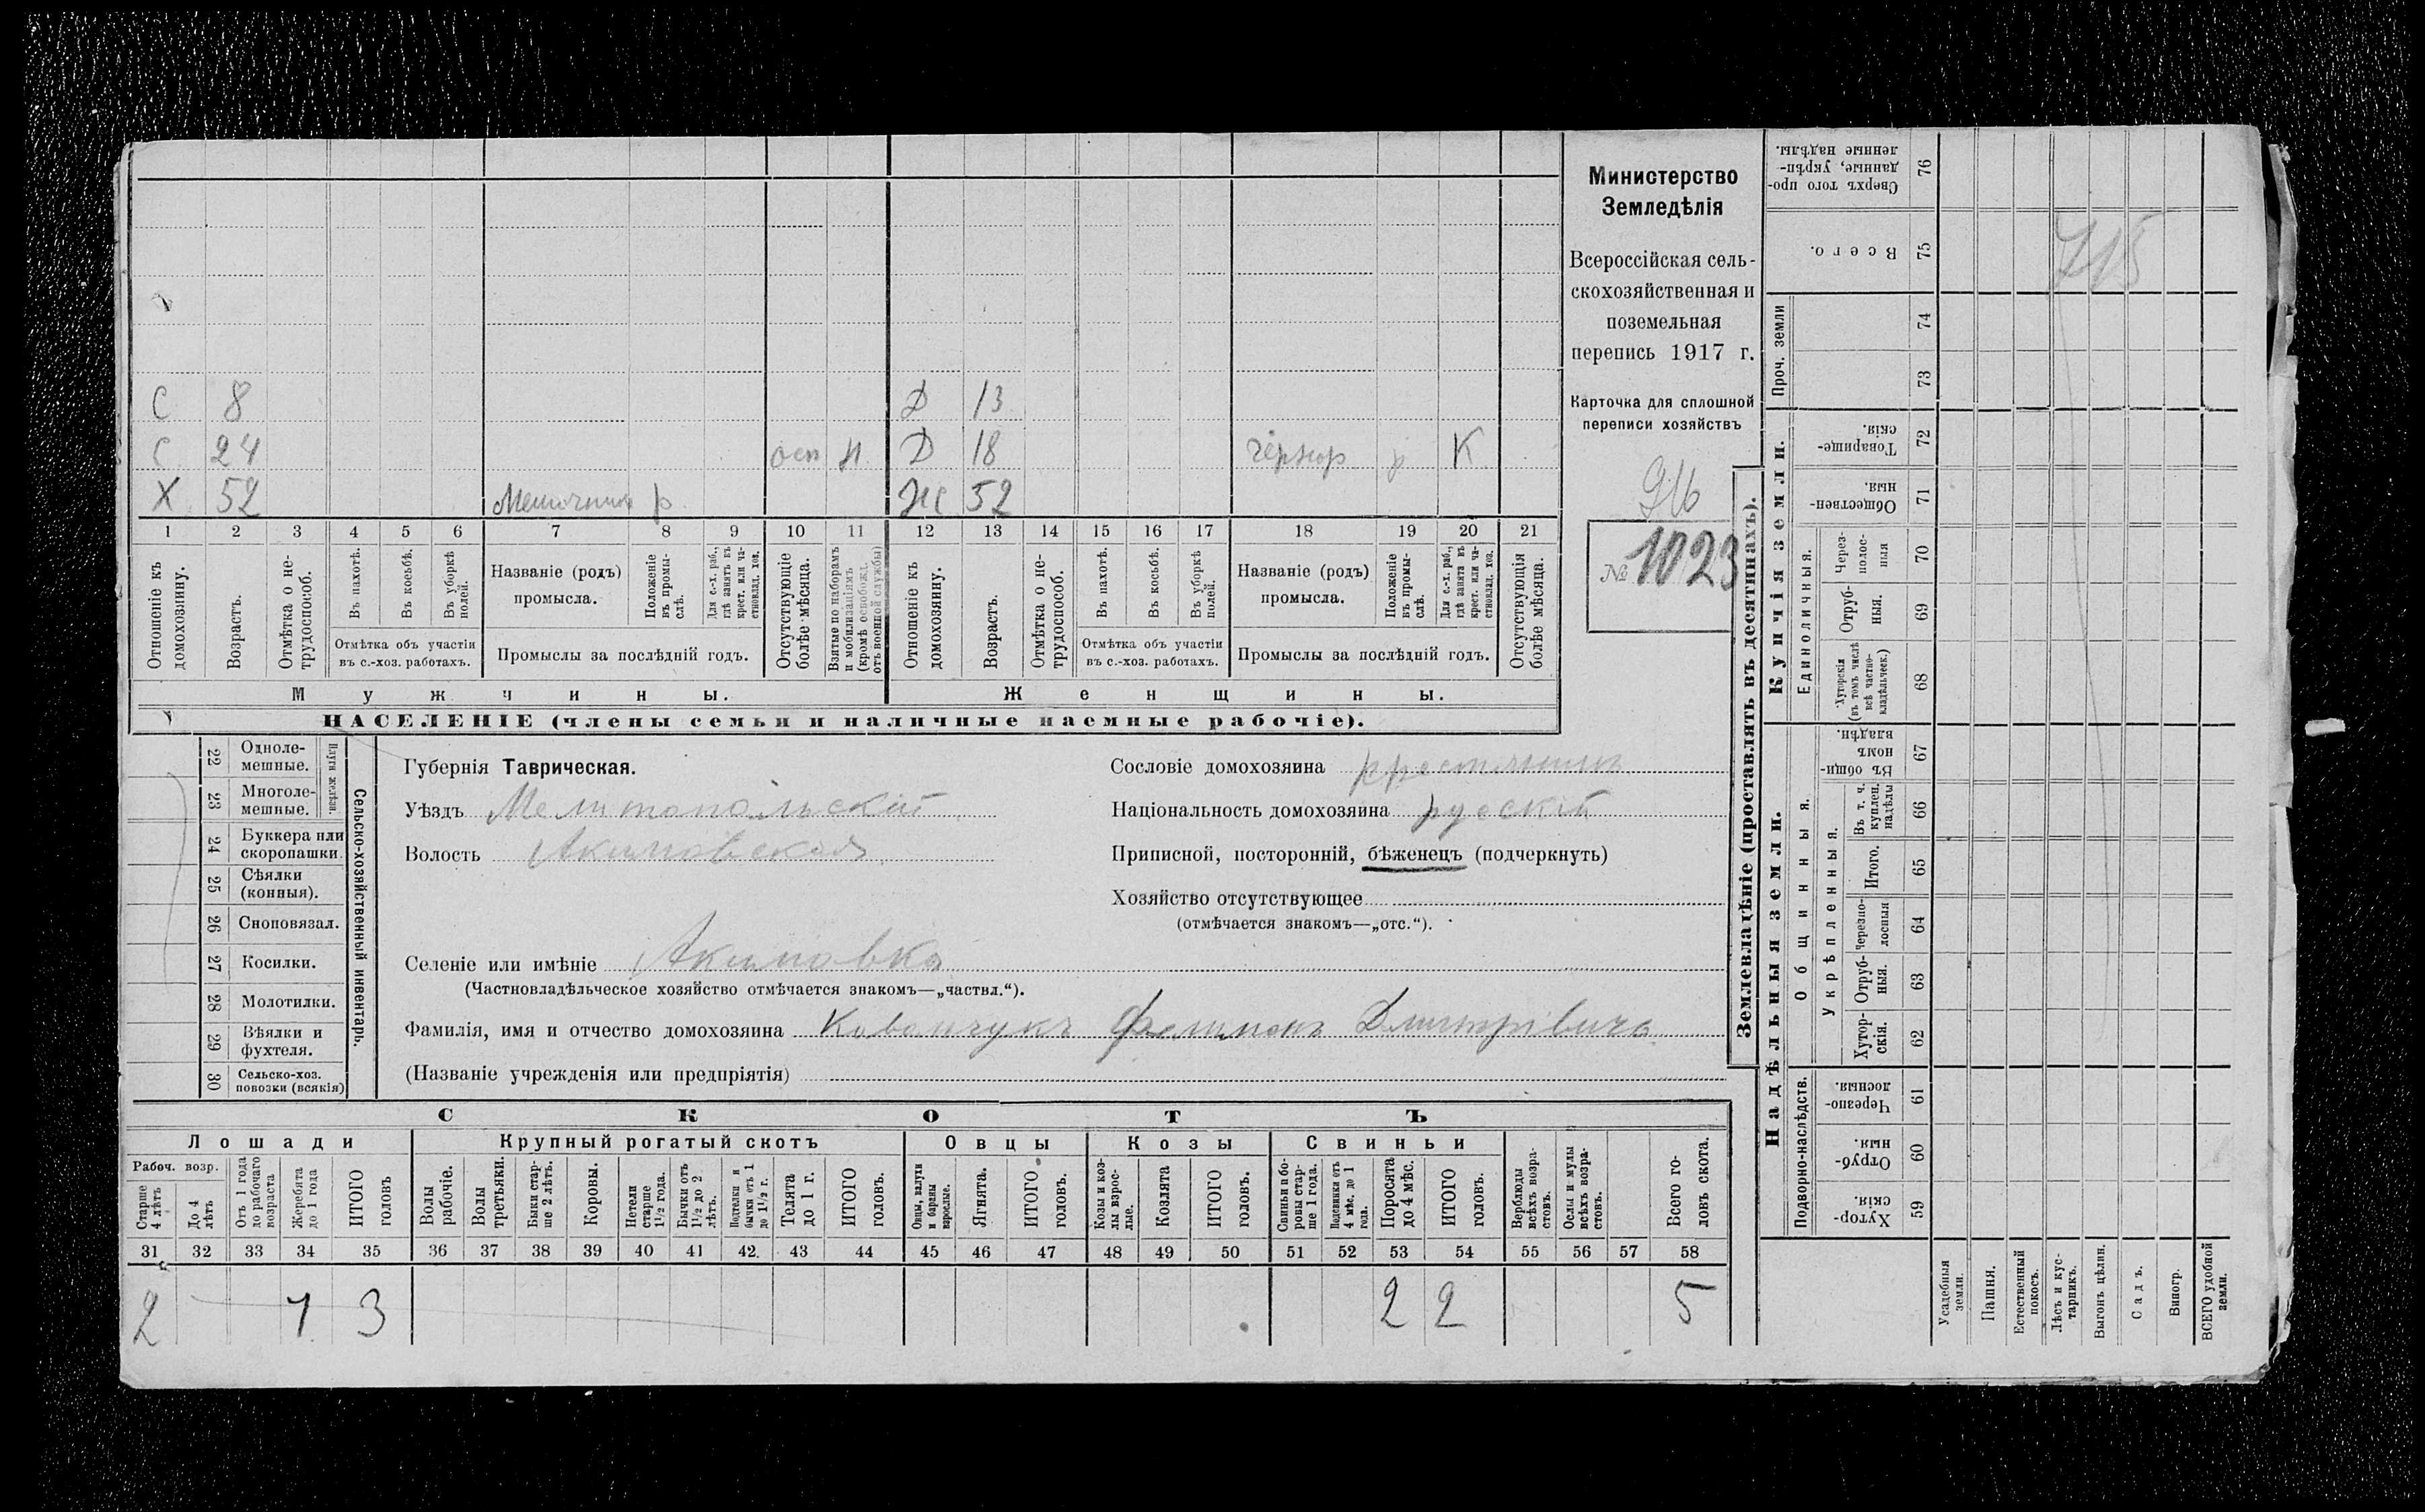 Министерство
Земледѣлія
Всероссійская сель-
скохозяйственная и
поземельная
перепись 1917 г.
Карточка для сплошной
переписи хозяйствъ
№ 1023
С 8 Д 13
С 24 Н Д 18 чернор р К
Х 52 р Ж 52
1 2 3 4 5 6 7 8 9 10 11 12 13 14 15 16 17 18 19 20 21
Отношеніе къ домохозяину.
Возрастъ.
Отмѣтка о не-трудоспособ.
Въ пахотѣ.
Въ косьбѣ.
Въ уборкѣ полей.
Отмѣтка объ участіи
въ с.-хоз. работахъ.
Названіе (родъ)
промысла.
Положеніе въ промы-слѣ.
Для с.-х. раб., гдѣ занятъ въ крест. или ча-стновлад. хоз.
Промыслы за послѣдній годъ.
Отсутствующіе болѣе мѣсяца.
Взятые по наборамъ и мобилизаціямъ (кромѣ освобожд. отъ военной службы)
Отношеніе къ домохозяину.
Возрастъ.
Отмѣтка о не-трудоспособ.
Въ пахотѣ.
Въ косьбѣ.
Въ уборкѣ полей.
Отмѣтка объ участіи
въ с.-хоз. работахъ.
Названіе (родъ)
промысла.
Положеніе въ промы-слѣ.
Для с.-х. раб., гдѣ занята въ крест. или ча-стновлад. хоз.
Промыслы за послѣдній годъ.
Отсутствующія болѣе мѣсяца.
Мужчины.
Женщины.
НАСЕЛЕНІЕ (члены семьи и наличные наемные рабочіе).
22 Одноле-мешные.
23 Многоле-мешные.
Плуги желѣзн.
24 Буккера или скоропашки.
25 Сѣялки (конныя).
26 Сноповязал.
27 Косилки.
28 Молотилки.
29 Вѣялки и фухтеля.
30 Сельско-хоз. повозки (всякія)
Сельско-хозяйственный инвентарь.
Губернія Таврическая.
Уѣздъ Мелитопольскій
Волость Акимовская
Сословіе домохозяина крестьянинъ
Національность домохозяина рускій
Приписной, посторонній, бѣженецъ (подчеркнуть)
Хозяйство отсутствующее
(отмѣчается знакомъ—„отс.“).
Селеніе или имѣніе Акимовка
(Частновладѣльческое хозяйство отмѣчается знакомъ—„частвл.“).
Фамилія, имя и отчество домохозяина Ковальчукъ Филимонъ Дмитріевичъ
(Названіе учрежденія или предпріятія)
СКОТЪ
Лошади
Крупный рогатый скотъ
Овцы
Козы
Свиньи
Рабоч. возр.
Старше 4 лѣтъ
До 4 лѣтъ
Отъ 1 года до рабочаго возраста
Жеребята до 1 года
ИТОГО головъ
Волы рабочіе.
Волы третьяки.
Быки стар-ше 2 лѣтъ.
Коровы.
Нетели старше 1½ года.
Бычки отъ 1½ до 2 лѣтъ.
Подтелки и бычки отъ 1 до 1½ г.
Телята до 1 г.
ИТОГО головъ.
Овцы, валухи и бараны взрослые.
Ягнята.
ИТОГО головъ.
Козы и коз-лы взрос-лые.
Козлята
ИТОГО головъ.
Свиньи и бо-ровы стар-ше 1 года.
Подсвинки отъ 4 мѣс. до 1 года.
Поросята до 4 мѣс.
ИТОГО головъ.
Верблюды всѣхъ возра-стовъ.
Ослы и мулы всѣхъ возра-стовъ.
Всего го-ловъ скота.
31 32 33 34 35 36 37 38 39 40 41 42. 43 44 45 46 47 48 49 50 51 52 53 54 55 56 57 58
2 1 3 2 2 5
Землевладѣніе (проставлять въ десятинахъ).
Купчія земли.
Надѣльныя земли.
Сверхъ того про-данные, укрѣп-ленные надѣлы. 76
Всего. 75
Проч. земли 74 73
Товарище-скія. 72
Обществен-ныя. 71
Единоличныя.
Через-полос-ныя 70
Отруб-ныя. 69
Хуторскія (въ томъ числѣ всѣ частно-владѣльческ.) 68
Общинныя.
Въ общин-номъ владѣн. 67
Укрѣпленныя.
Въ т. ч. куплен. надѣлы 66
Итого. 65
Черезпо-лосныя 64
Отруб-ныя. 63
Хутор-скія. 62
Подворно-наслѣдств.
Черезпо-лосныя. 61
Отруб-ныя. 60
Хутор-скія. 59
Усадебныя земли.
Пашня.
Естественный покосъ.
Лѣсъ и кус-тарникъ.
Выгонъ цѣлин.
Садъ.
Виногр.
ВСЕГО удобной земли.
715